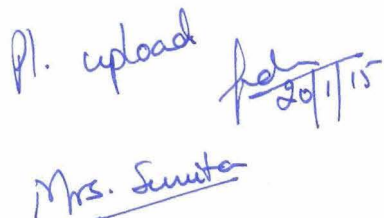 Pl. upload
20/1/15
Mrs. Sunita